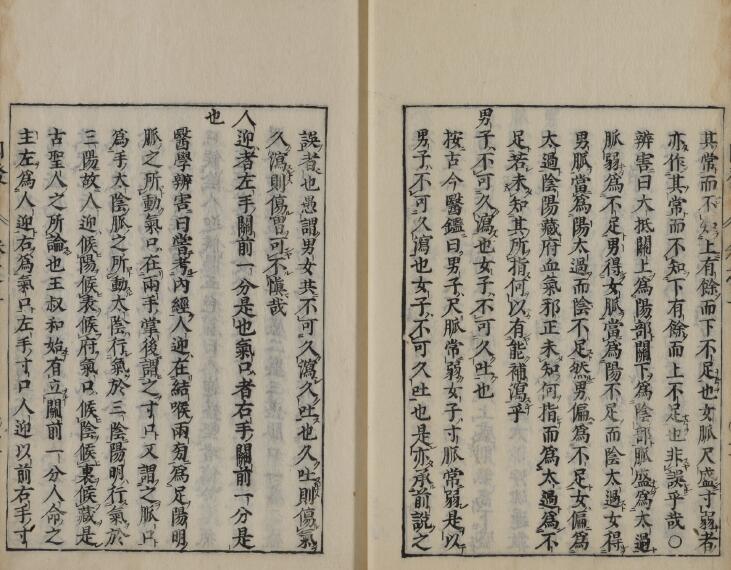 其常而不知上有餘而下不足也女脈尺盛寸弱者
亦作其常而不知下有餘而上不足也非誤乎哉〇
辨害曰大抵關上爲陽部關下爲陰部脈盛爲太過
脈弱爲不足男得女脈當爲陽不足而陰太過女得
男脈當爲陽太過而陰不足然男偏爲不足女偏爲
太過陰陽藏府血氣邪正未知何指而爲太過爲不
足若未知其所指何以有能補瀉乎
男子不可久瀉也女子不可久吐也
按古今醫鑑曰男子尺脈常弱女子寸脈常弱是以
男子不可久瀉也女子不可久吐也是亦承前說之
誤者也愚謂男女共不可久瀉久吐也久吐則傷氣
久瀉則傷胃可不愼哉
人迎者左手關前一分是也氣口者右手關前一分是
也
醫學辨害曰嘗考內經人迎在結喉兩旁爲足陽明
脈之所動氣口在兩手掌後謂之寸口又謂之脈口
爲手太陰脈之所動太陰行氣於三陰陽明行氣於
三陽故人迎候陽候表候府氣口候陰候裏候藏是
古聖人之所論也王叔和始有立關前一分人命之
主左爲人迎右爲氣口左手寸口人迎以前右手寸